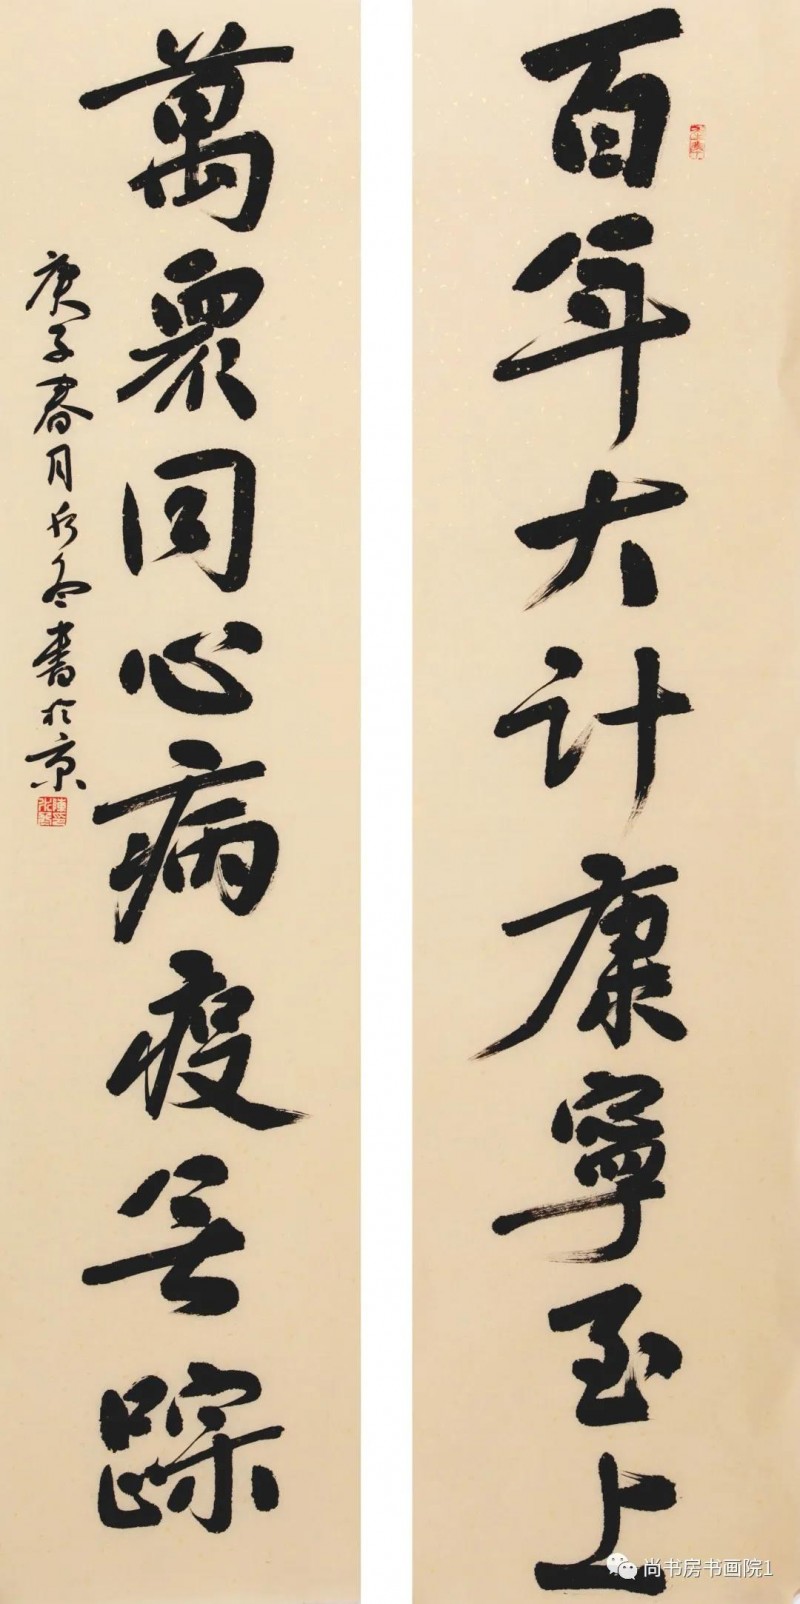 百年大计康寧至上
萬衆同心病疫無踪
庚子春月書於京
尚书房书画院1